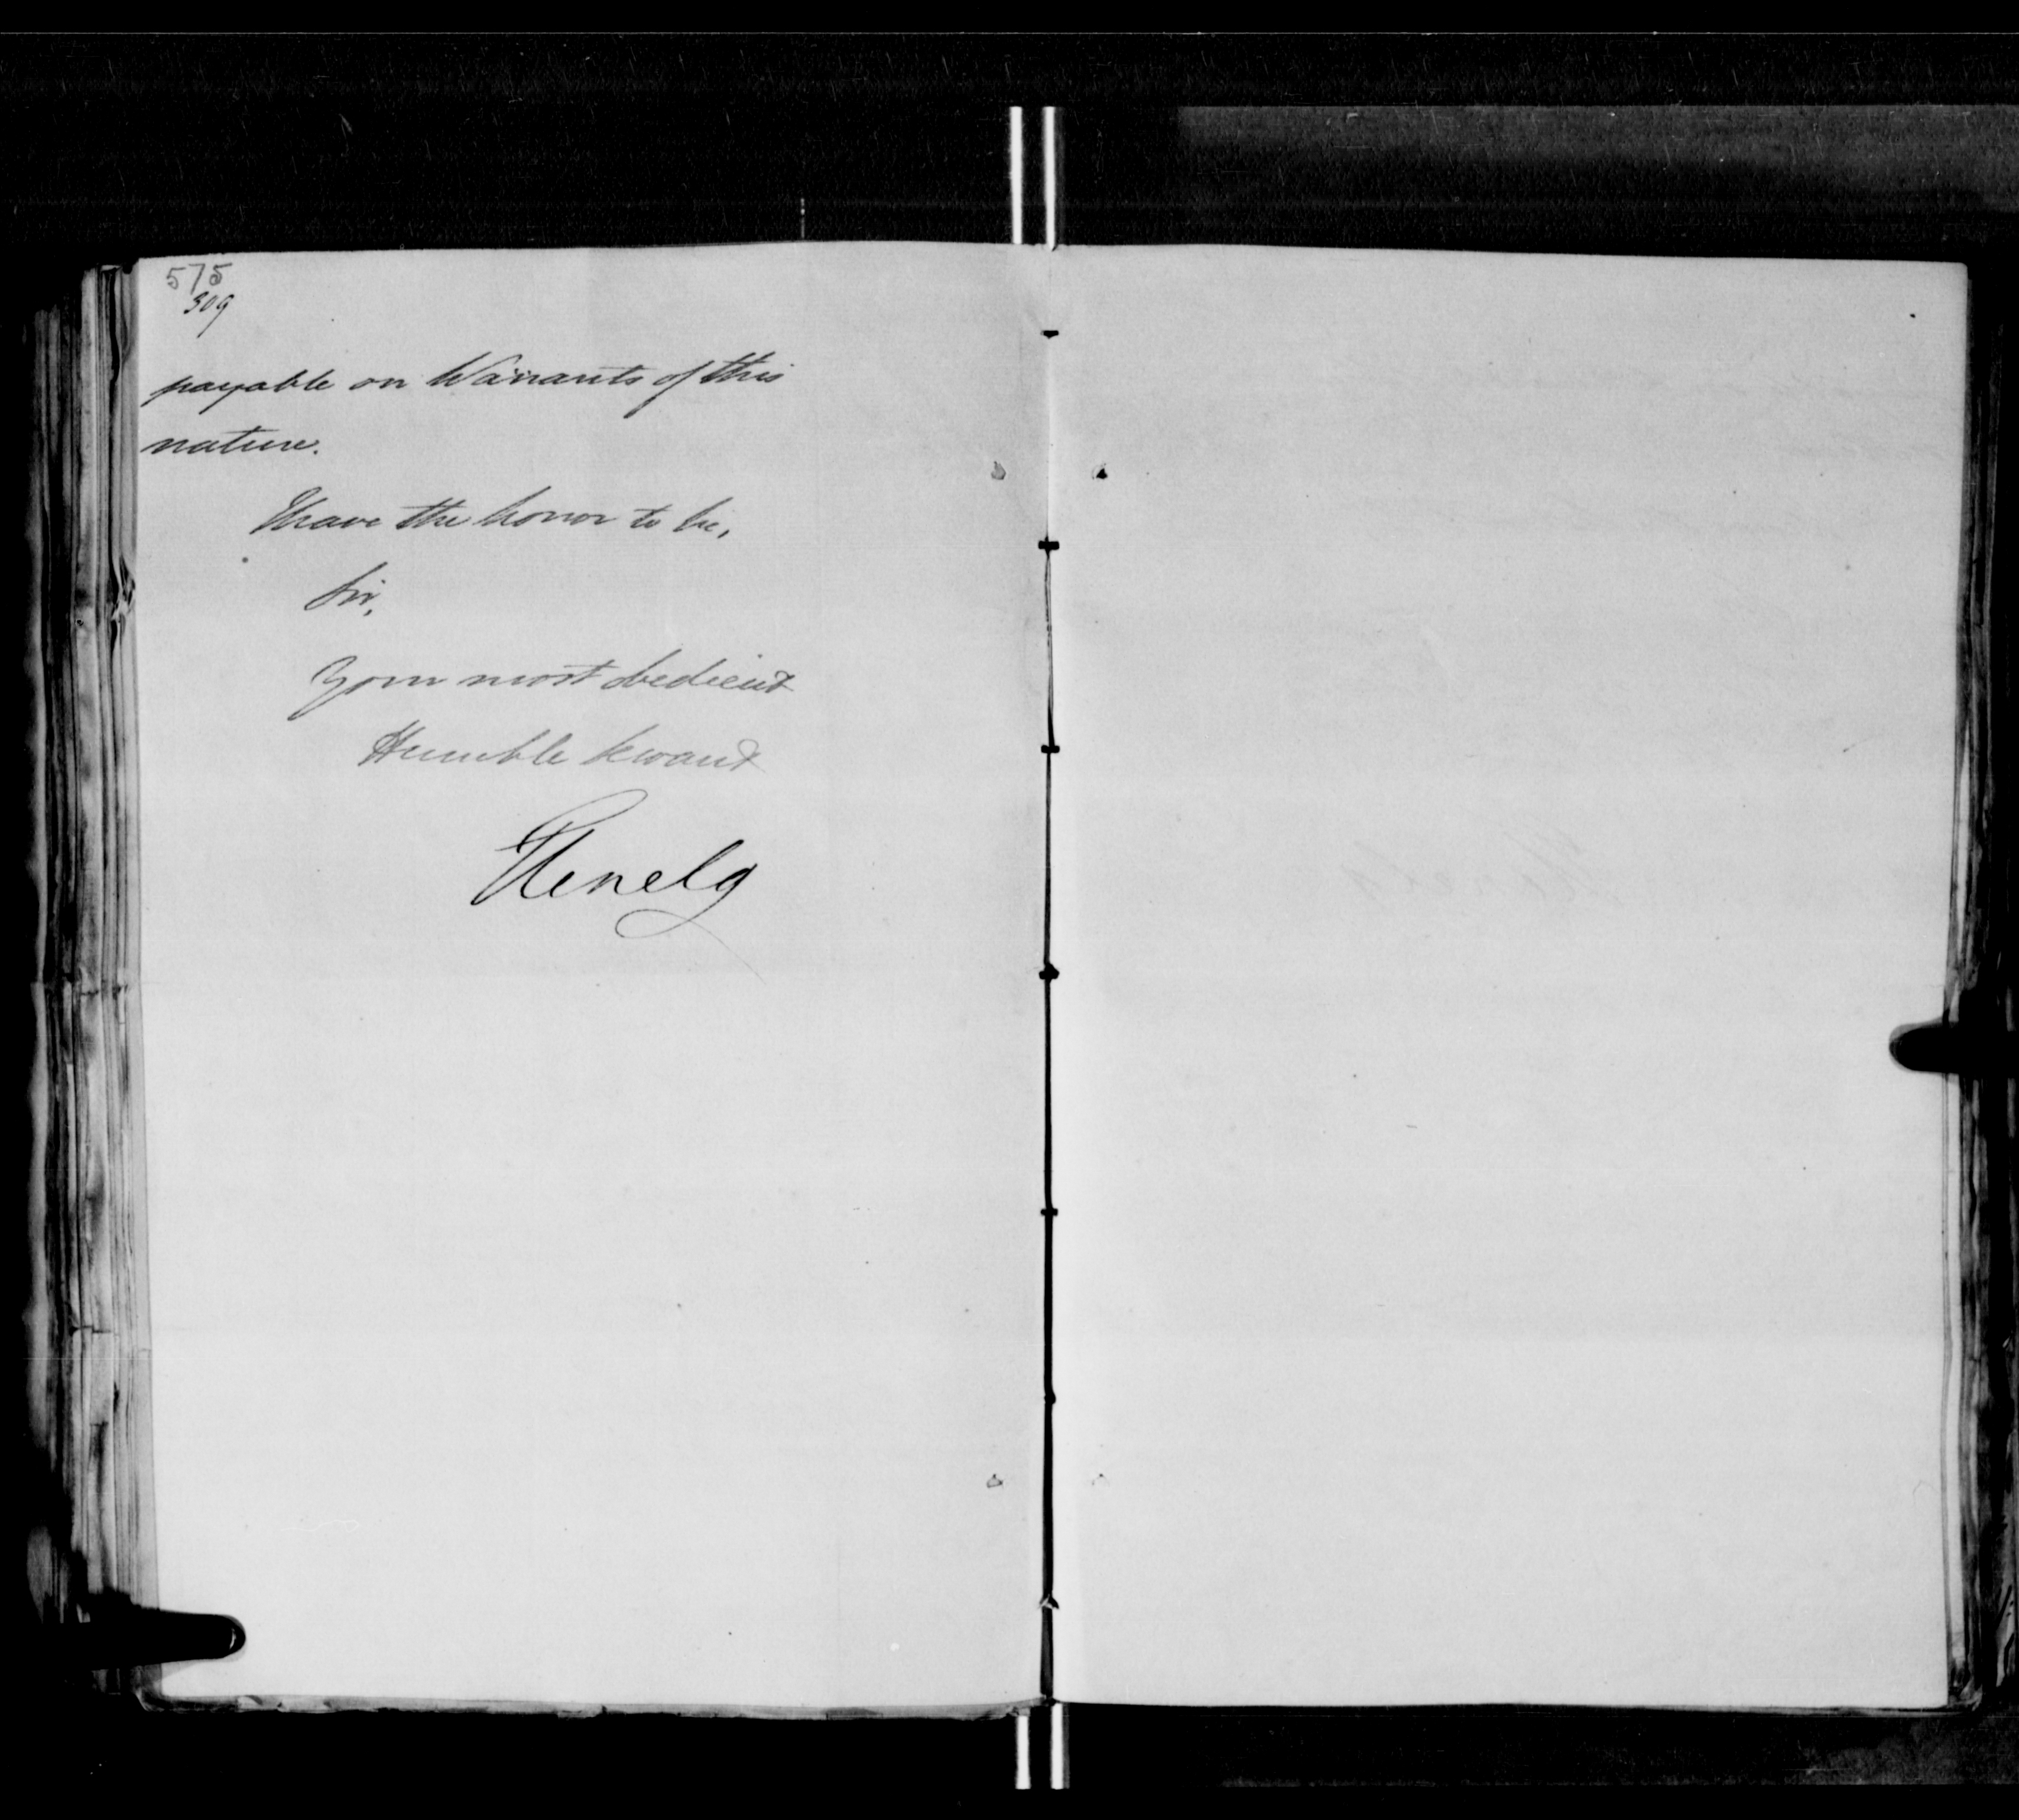 575
309
payable on Warrants of this
nature.
I have the honor to be,
Sir,
Your most obedient
Humble Servant
Glenelg